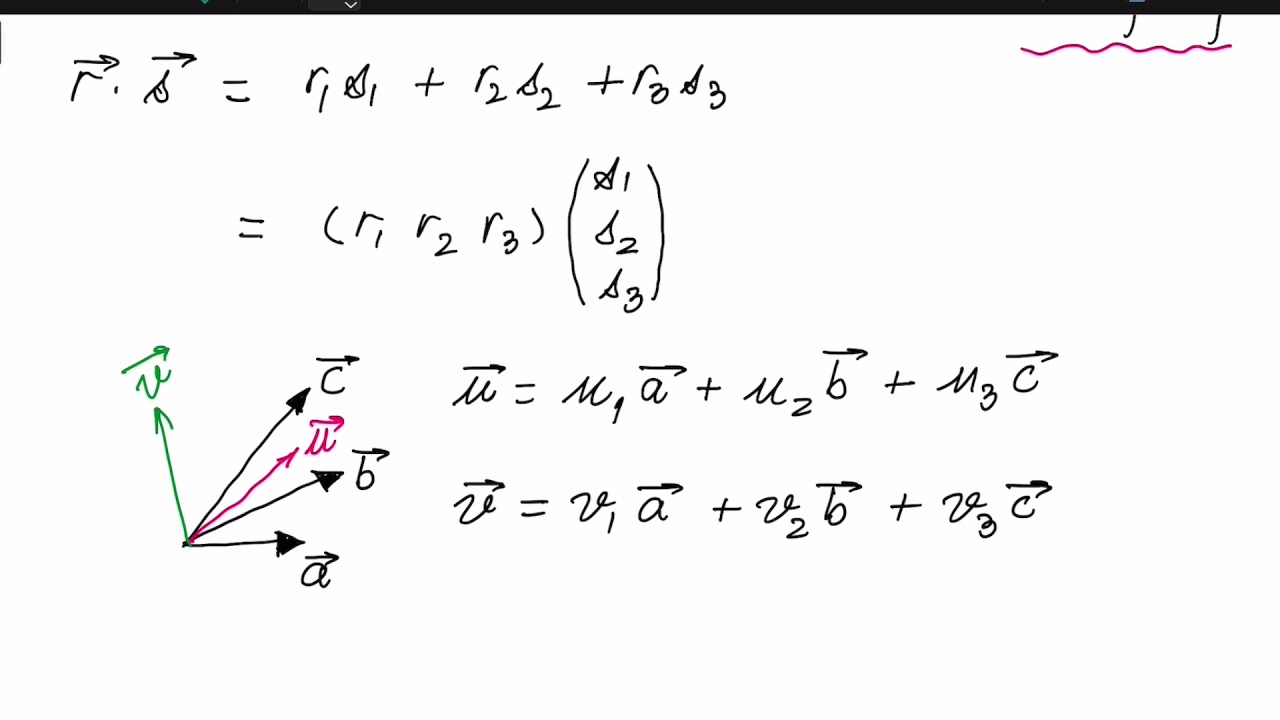 r⃗ · s⃗ = r₁s₁ + r₂s₂ + r₃s₃
= (r₁ r₂ r₃) (s₁
s₂
s₃)
v⃗
c⃗
u⃗
b⃗
a⃗
u⃗ = u₁a⃗ + u₂b⃗ + u₃c⃗
v⃗ = v₁a⃗ + v₂b⃗ + v₃c⃗